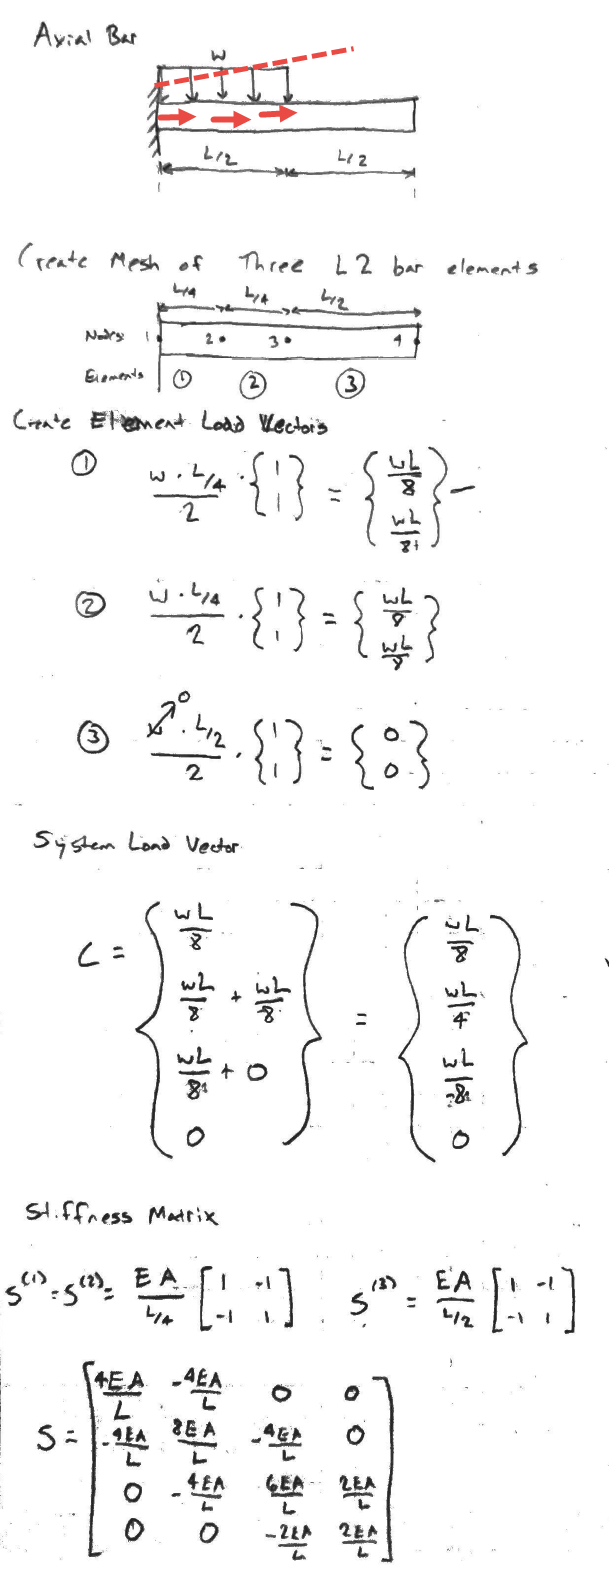 Axial Bar
w
L/2 L/2
Create Mesh of Three L2 bar elements
L/4 L/4 L/2
Nodes 1 2 3 4
Elements ① ② ③
Create Element Load Vectors
① w · L/4 / 2 · {1 1} = {wL/8 wL/8}
② w · L/4 / 2 · {1 1} = {wL/8 wL/8}
③ w→0 · L/2 / 2 · {1 1} = {0 0}
System Load Vector
C = {wL/8, wL/8 + wL/8, wL/8 + 0, 0} = {wL/8, wL/4, wL/8, 0}
Stiffness Matrix
S(1) = S(2) = EA / L/4 [1 -1 -1 1] S(3) = EA / L/2 [1 -1 -1 1]
S = [4EA/L -4EA/L 0 0
-4EA/L 8EA/L -4EA/L 0
0 -4EA/L 6EA/L 2EA/L
0 0 -2EA/L 2EA/L]